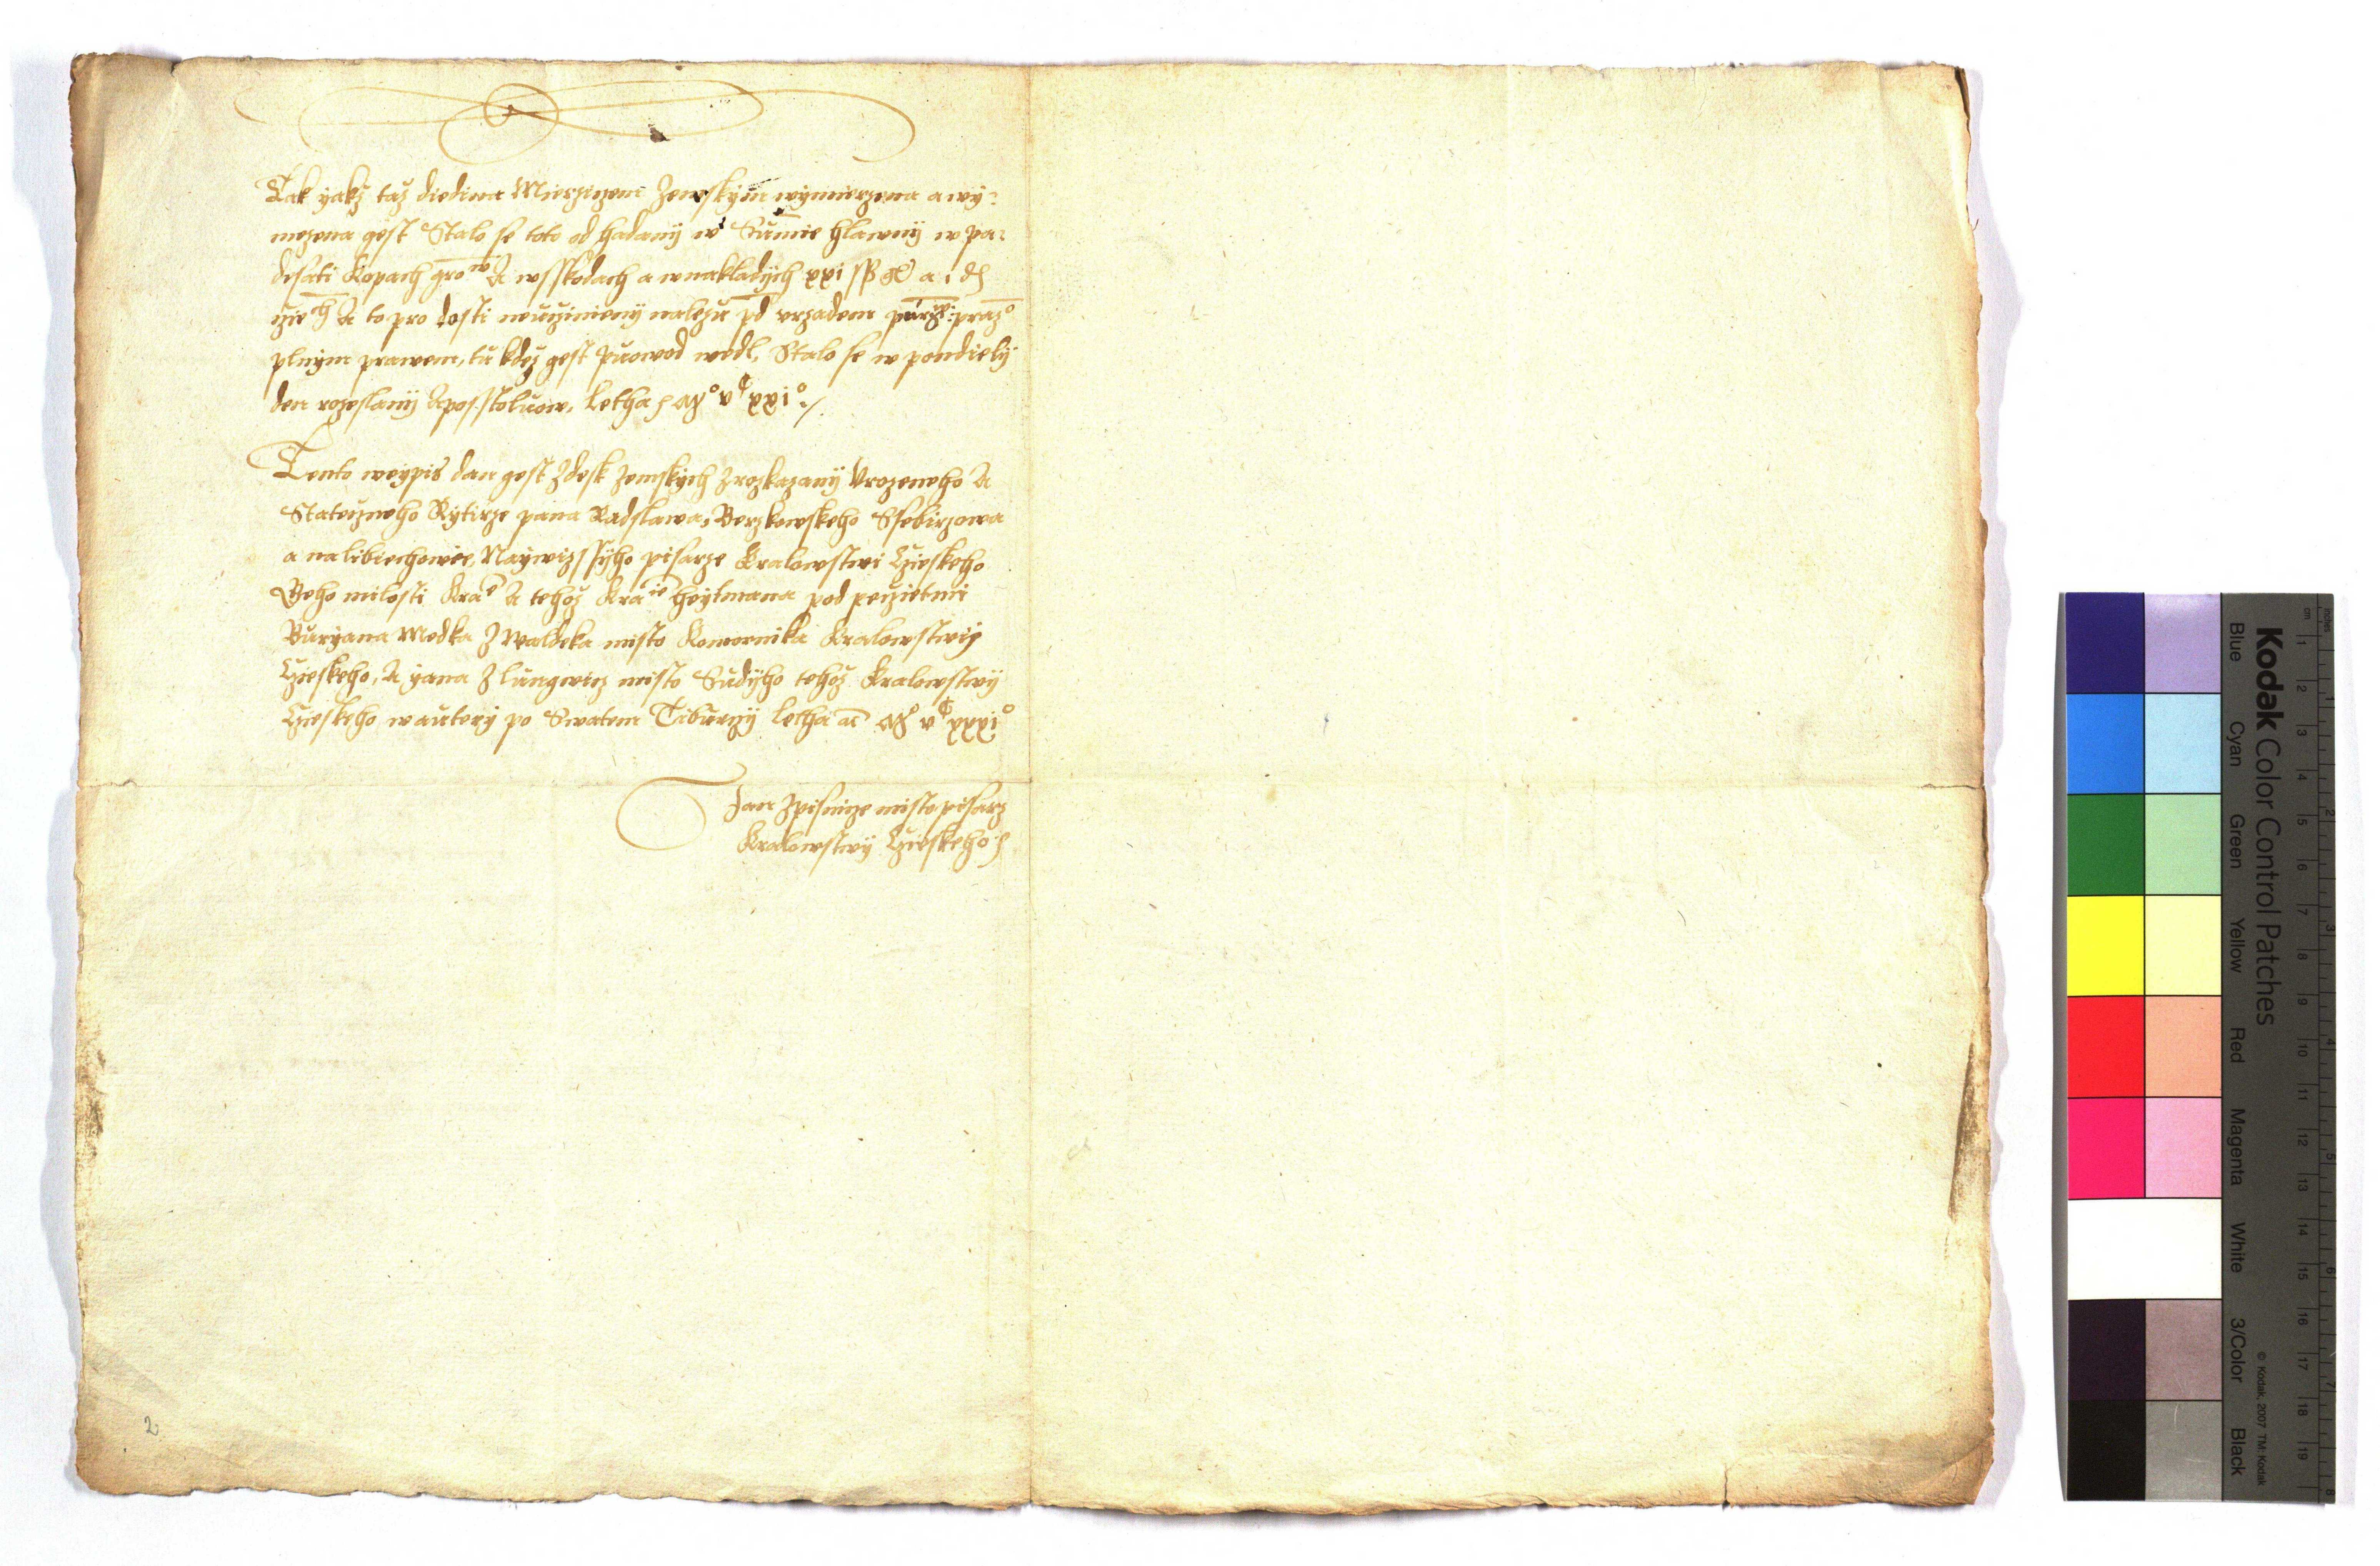 Tak yakz taz diedina Mierzizeni Zemskym wymierzena a wy:
mezena gest Stalo se toto od hadanij w Summie hlawnij w pa:
desati kopach gro A wsskodach a wnakladijch xxi a
A to pro dosti neuczinienij nalezu pd vrzadem purg: praz
plnym prawem, tu kdez gest puowod wedl, Stalo se w pondielij
den rozeslanij Aposstoluow, letha xxi
Tento weypis dan gest Zdesk Zemskych Z rozkazanij Vrozeneho A
Stateczneho Rytirze pana Radslawa, Berzkowskeho Ssebirzowa
a nalibiechowie, Naywizssijho pisarze Kralowstwi Czieskeho
Geho milosti Kra A tehoz Kra heytmana pod peczietmi
Buryana Medka Z Waldeka misto Komornika Kralowstwij
Czieskeho, A yana Z lungwicz misto Sudijho tehoz Kralowstwij
Czieskeho wauterij po Swatem Tiburczij letha xxxi
Jan Zpisnicze misto pisarz
Kralowstwij Czieskeho
2
Kodak Color Control Patches
Blue Cyan Green Yellow Red Magenta White 3/Color Black
© Kodak, 2007 TM: Kodak
inches 1 2 3 4 5 6 7 8
cm 1 2 3 4 5 6 7 8 9 10 11 12 13 14 15 16 17 18 19